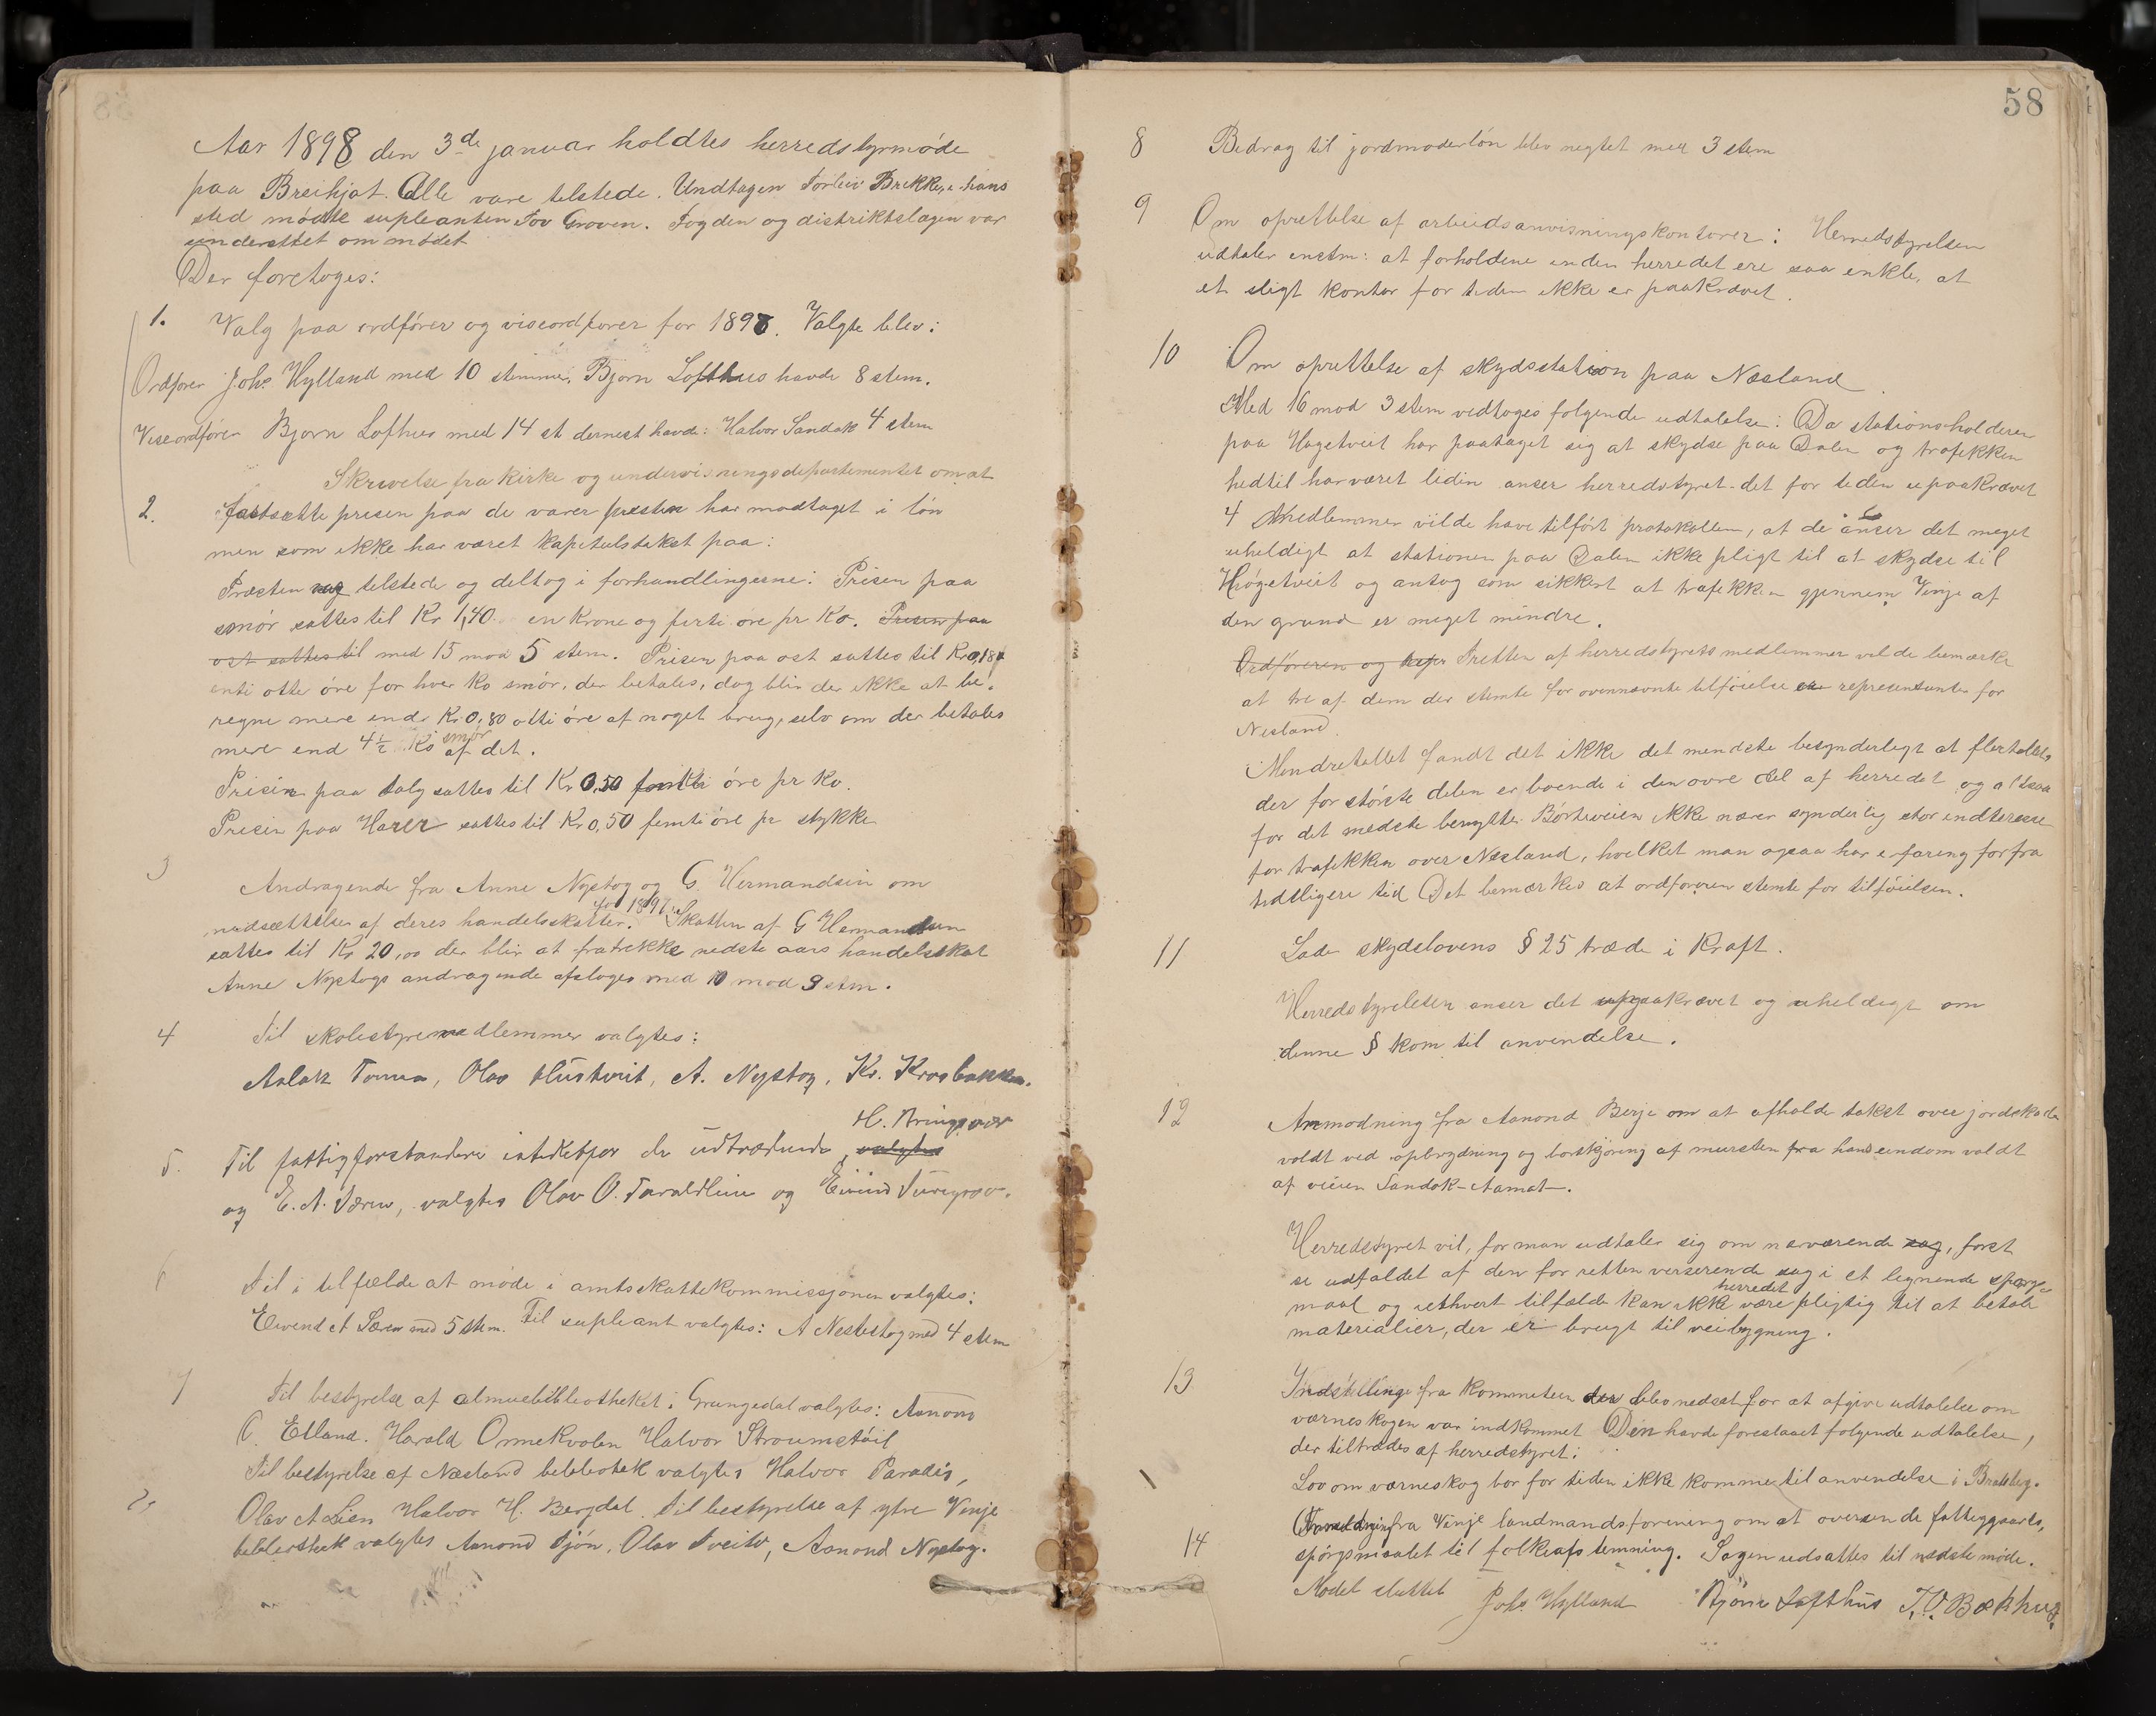 Aar 1898 den 3de januar holdtes herredstyrmøde
paa Breihjat. Alle vare telstede. Undtagen Torleiv Brekke, i hans
sted mødte supleanten Tov Groven. Fogden og distriktslægen var
underettet om mødet
Der foretoges:
1. Valg paa ordfører og viseordfører for 1898. Valgte blev:
Ordfører Johs Hylland med 10 stemmer. Bjørn Lofthus havde 8 stem.
Viseordfører Bjørn Lofthus med 14 st dernest havde: Halvor Sandok 4 stem
Skrivelse fra kirke og undervisningsdepartementet om at
2. fastsætte prisen paa de varer presten har modtaget i løn
men som ikke har været kapitulstakst paa:
Præsten telstede og deltog i forhandlingerne: Prisen paa
smør sattes til Kr 1,40 en krone og førti øre pr Ko. Prisen paa
ost sattes til med 15 mod 5 stem. Prisen paa ost sattes til Kr 0,18
otte øre for hver Ko smør, der betales, dog blir der ikke at be-
regne mere end Kr 0,80 otti øre af noget brug, selv om der betales
mere end 4½ Ko smør af det.
Prisen paa talg sattes til Kr 0,50 femti øre pr Ko.
Prisen paa Harer sattes til Kr 0,50 femti øre pr stykke
3 Andragende fra Anne Nystog og G. Hermandsen om
nedsættelse af deres handelsskatter for 1897. Skatten af G Hermandsen
sattes til Kr 20,00 der blir at fratrekke nedste aars handelsskat
Anne Nystogs andragende afsloges med 10 mod 9 stem.
4 Til skolestyremedlemmer valgtes:
Aslak Tor, Olav, A. Nystog, Kr. Krosbakken.
H. Bringsvær
5. Til fattigforstandere istedetfor de udtrædende, valgtes
og E. A. Særen, valgtes Olav O. Taraldlien og Eivind.
6 Til i tilfælde at møde i amtsskattekommissjonen valgtes:
Eivend A Særen med 5 stem. Til supleant valgtes: A Nestestog med 4 stem
7 Til bestyrelse af almuebibliotheket i Grungedal valgtes: Asmon
O. Edland. Harald Ormekvolen Halvor Straumstøil
Til bestyrelse af Næsland bibliotek valgtes Halvor Paradis,
Olav A Lien Halvor H. Bergdal. Til bestyrelse af ytre Vinje
bibliothek valgtes Asmond Tjøn, Olav Tveito, Asmond Nystog.
58
8 Bedrag til jordmoderløn blev negtet med 3 stem
9 Om oprettelse af arbeidsanvisningskontorer: Herredstyrelsen
udtaler enstm: at forholdene inden herredet ere saa enkle, at
et sligt kontor for tiden ikke er paakrævet.
10 Om oprettelse af skydsstation paa Næsland
Med 16 mod 3 stem vedtoges følgende udtalelse: Da stationsholderen
paa Høgetveit har paataget sig at skydse paa Dalen og trafikken
hedtil har været liden anser herredstyret det for tiden upaakrævet
4 medlemmer vilde have tilført protokollen, at de anser det meget
uheldigt at stationen paa Dalen ikke pligt til at skydse til
Høgetveit og antog som sikkert at trafikken gjennem Vinje af
den grund er meget mindre.
Ordføreren og Tretten af herredstyrets medlemmer vilde bemærke
at tre af dem der stemte for ovennævnte tilføielse er representanter for
Nesland.
Mindretallet fandt det ikke det mindste besynderlegt at flertallet,
der for største delen er boende i den øvre del af herredet og altsaa
for det meste benytter Børteveien ikke nærer synderlig stor indteresse
for trafikken over Næsland, hvilket man ogsaa har erfaring for fra
tidligere tid Det bemærkes at ordføreren stemte for tilføielsen.
11 Lade skydslovens § 25 træde i Kraft.
Herredstyrelsen anser det upaakrævet og uheldigt om
denne § kom til anvendelse.
12 Anmodning fra Aanond Berje om at afholde takst over jordskade
voldt ved opbrydning og bortkjøring af mursten fra hans eiendom voldt
af veien Sandok-Aamot.
Herredstyret vil, før man udtaler sig om nærværende sag, først
se udfaldet af den for retten verserende sag i et lignende spørgs-
maal og i ethvert tilfælde kan ikke herredet være pligtig til at betale
materialier, der er brugt til veibygning.
13 Indstillinge fra kommeteen der blev nedsat for at afgive udtalelse om
værneskogen var indkommet Den havde foreslaaet følgende udtalelse,
der tiltrædes af herredstyret:
Lov om værneskog bør for tiden ikke komme til anvendelse i Bratsberg.
14 fra Vinje landmandsforening om at oversende fattiggaards,
spørgsmaalet til folkeafstemning. Sagen udsattes til nedste møde.
Mødet sluttet Johs. Hylland Bjørn Lofthus T. O. Bækhus